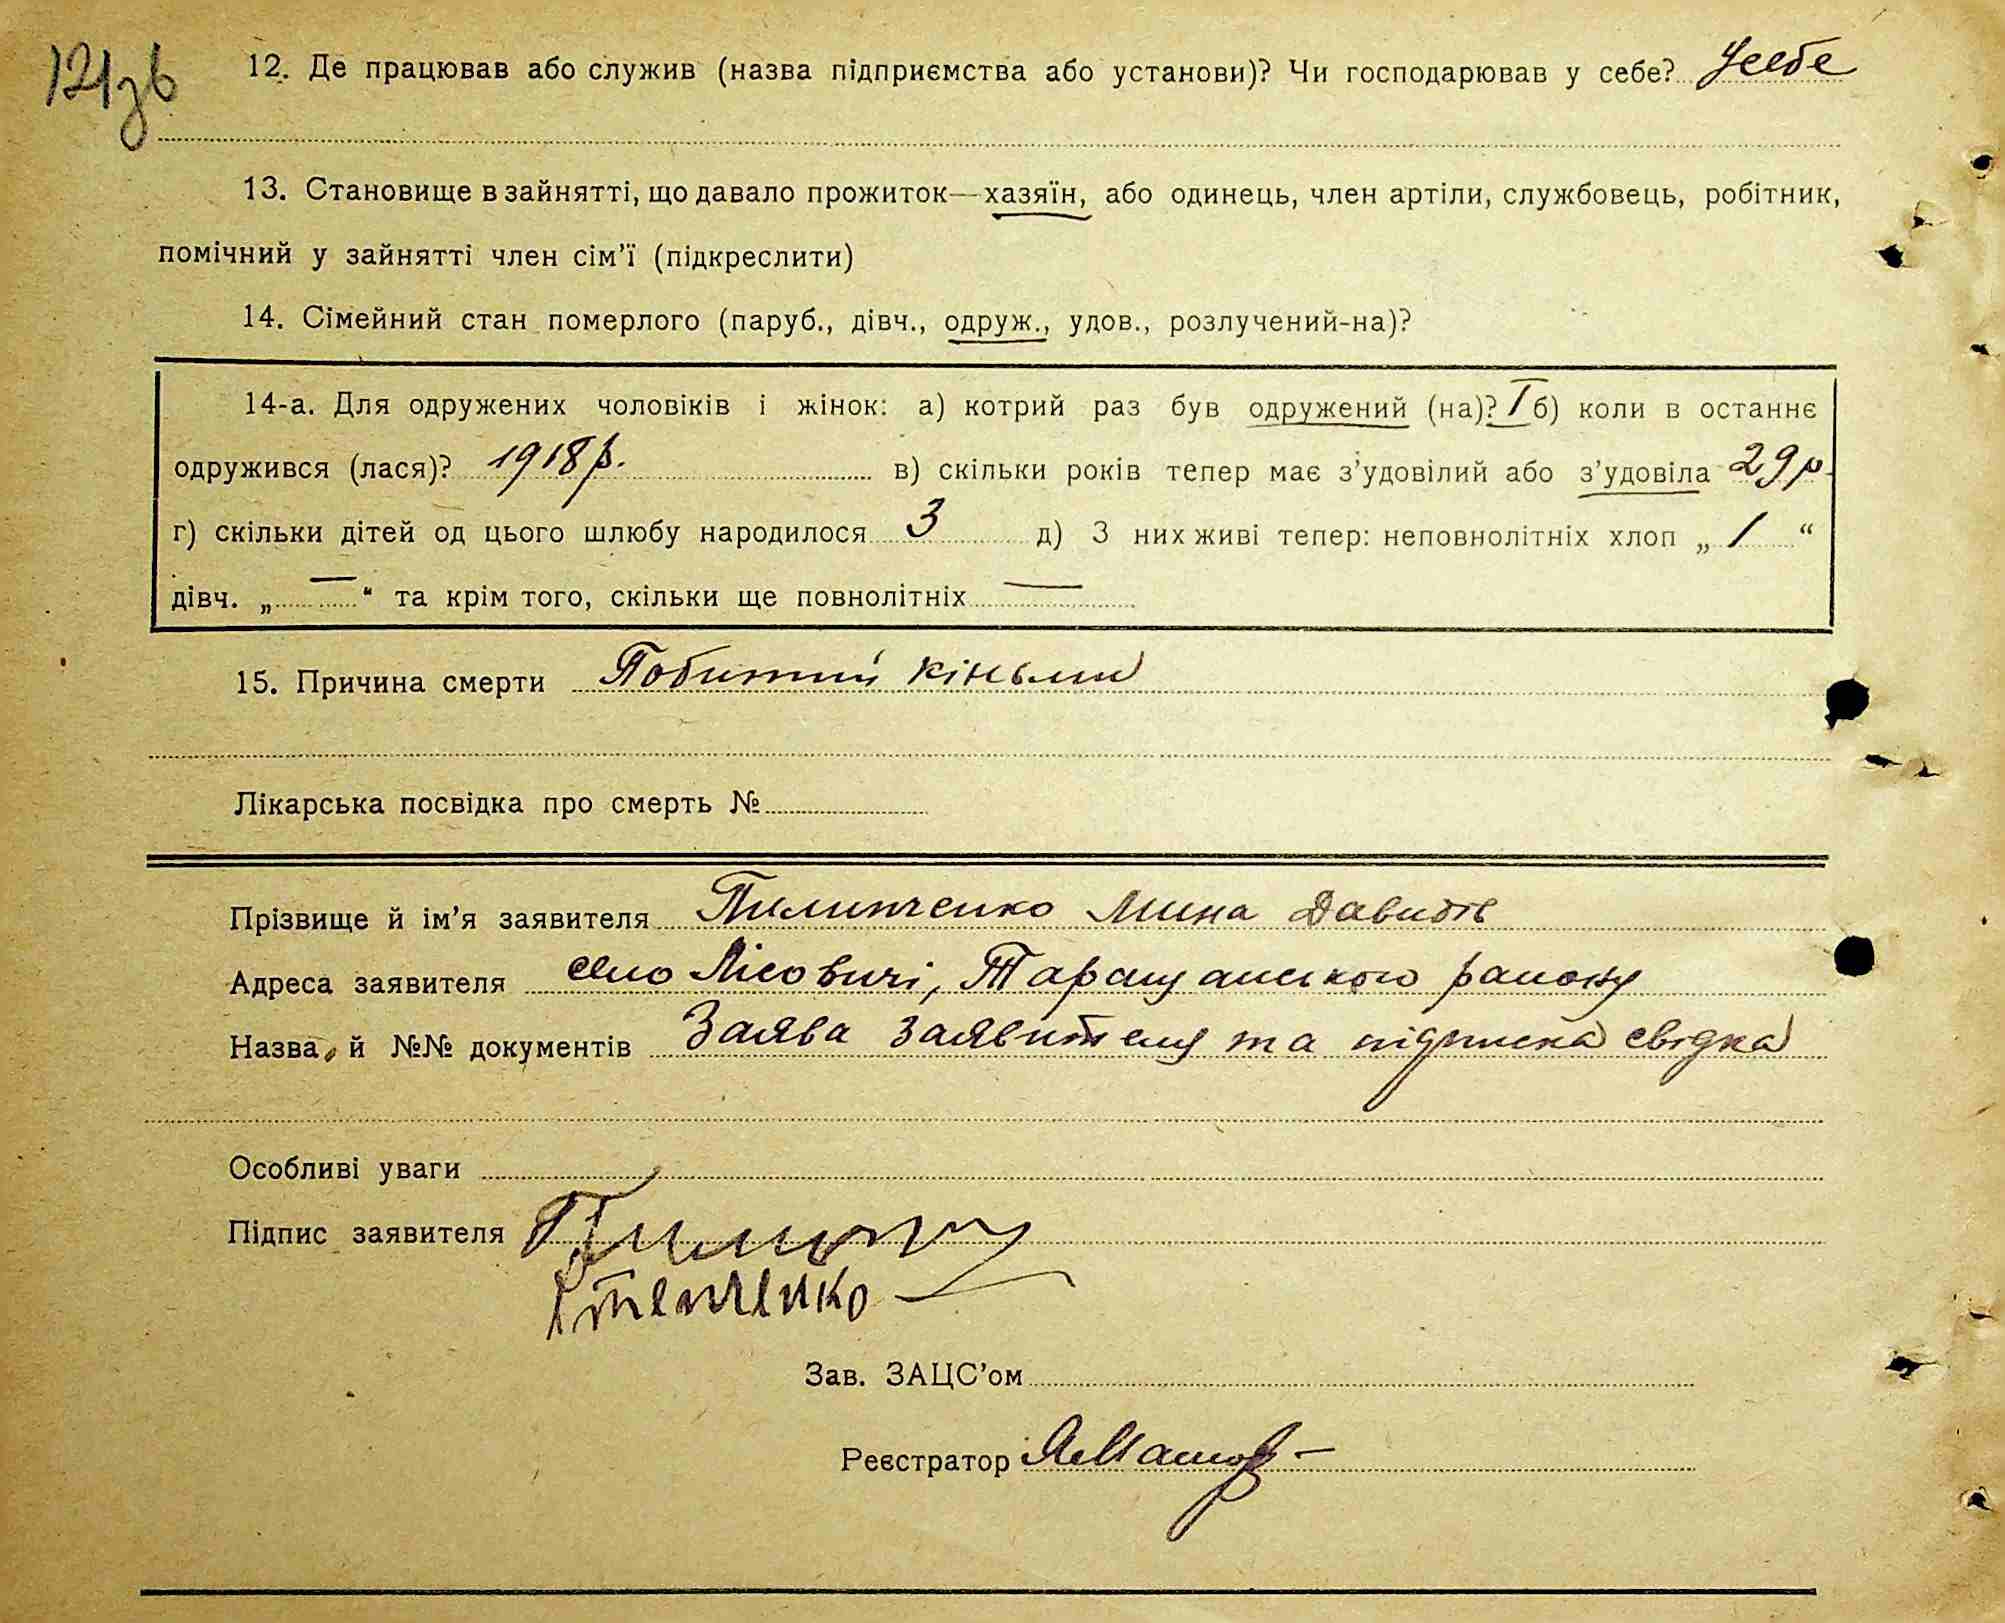 121зв
12. Де працював або служив (назва підприємства або установи)? Чи господарював у себе? У себе
13. Становище в зайнятті, що давало прожиток—хазяїн, або одинець, член артіли, службовець, робітник,
помічний у зайнятті член сім’ї (підкреслити)
14. Сімейний стан померлого (паруб., дівч., одруж., удов., розлучений-на)?
14-а. Для одружених чоловіків і жінок: а) котрий раз був одружений (на)? I б) коли в останнє
одружився (лася)? 1918 р. в) скільки років тепер має з’удовілий або з’удовіла 29 р.
г) скільки дітей од цього шлюбу народилося 3 д) З них живі тепер: неповнолітніх хлоп „ 1 “
дівч. „ — “ та крім того, скільки ще повнолітніх —
15. Причина смерти Побитий кіньми
Лікарська посвідка про смерть №
Прізвище й ім’я заявителя Пилипченко Мина Давидів
Адреса заявителя село Лісовичі, Таращанського району
Назва й №№ документів Заява заявителя та підписка свідка
Особливі уваги
Підпис заявителя
Зав. ЗАЦС’ом
Реєстратор